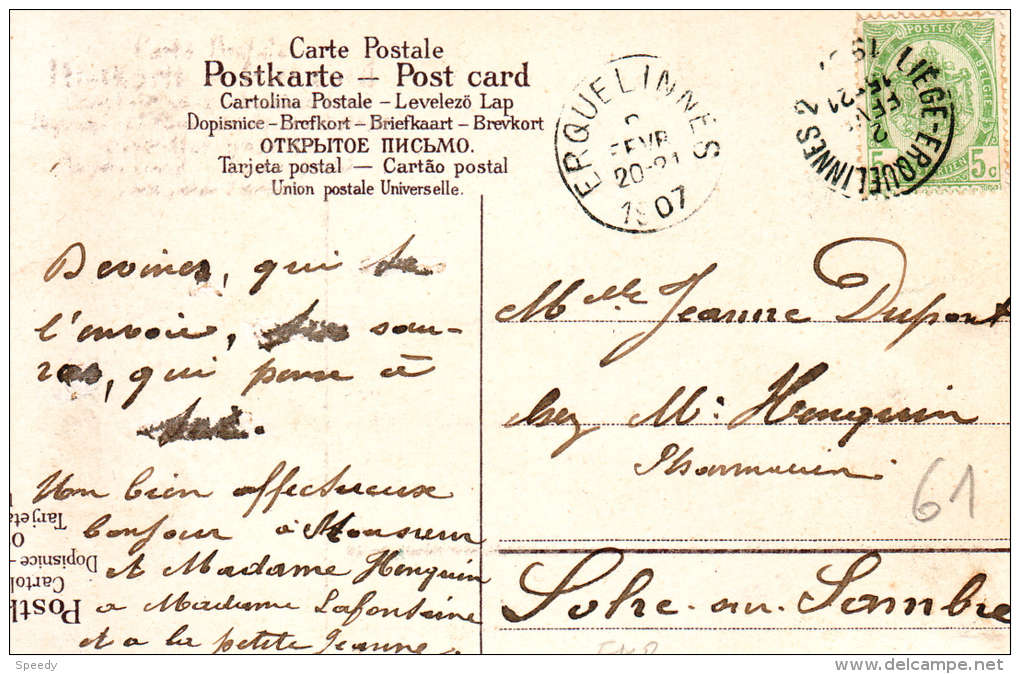 Carte Postale
Postkarte — Post card
Cartolina Postale – Levelező Lap
Dopisnice – Brefkort – Briefkaart – Brevkort
ОТКРЫТОЕ ПИСЬМО.
Tarjeta postal — Cartão postal
Union postale Universelle.
ERQUELINNES
FEVR
20-21
1907
LIÉGE-ERQUELINNES 2
15-21
POSTES
BELGIE
5c
Devinez, qui
l'envoie, sau-
qui pense à
Un bien affectueux
bonjour à Monsieur
et Madame Henquin
a Madame Lafontaine
et a la petite Jeanne.
Mlle Jeanne Dupont
chez Mr Henquin
Pharmacien
61
Solre-au-Sambre
Tarjeta
Dopisnice
Cartol
Postk
Speedy
delcampe.net